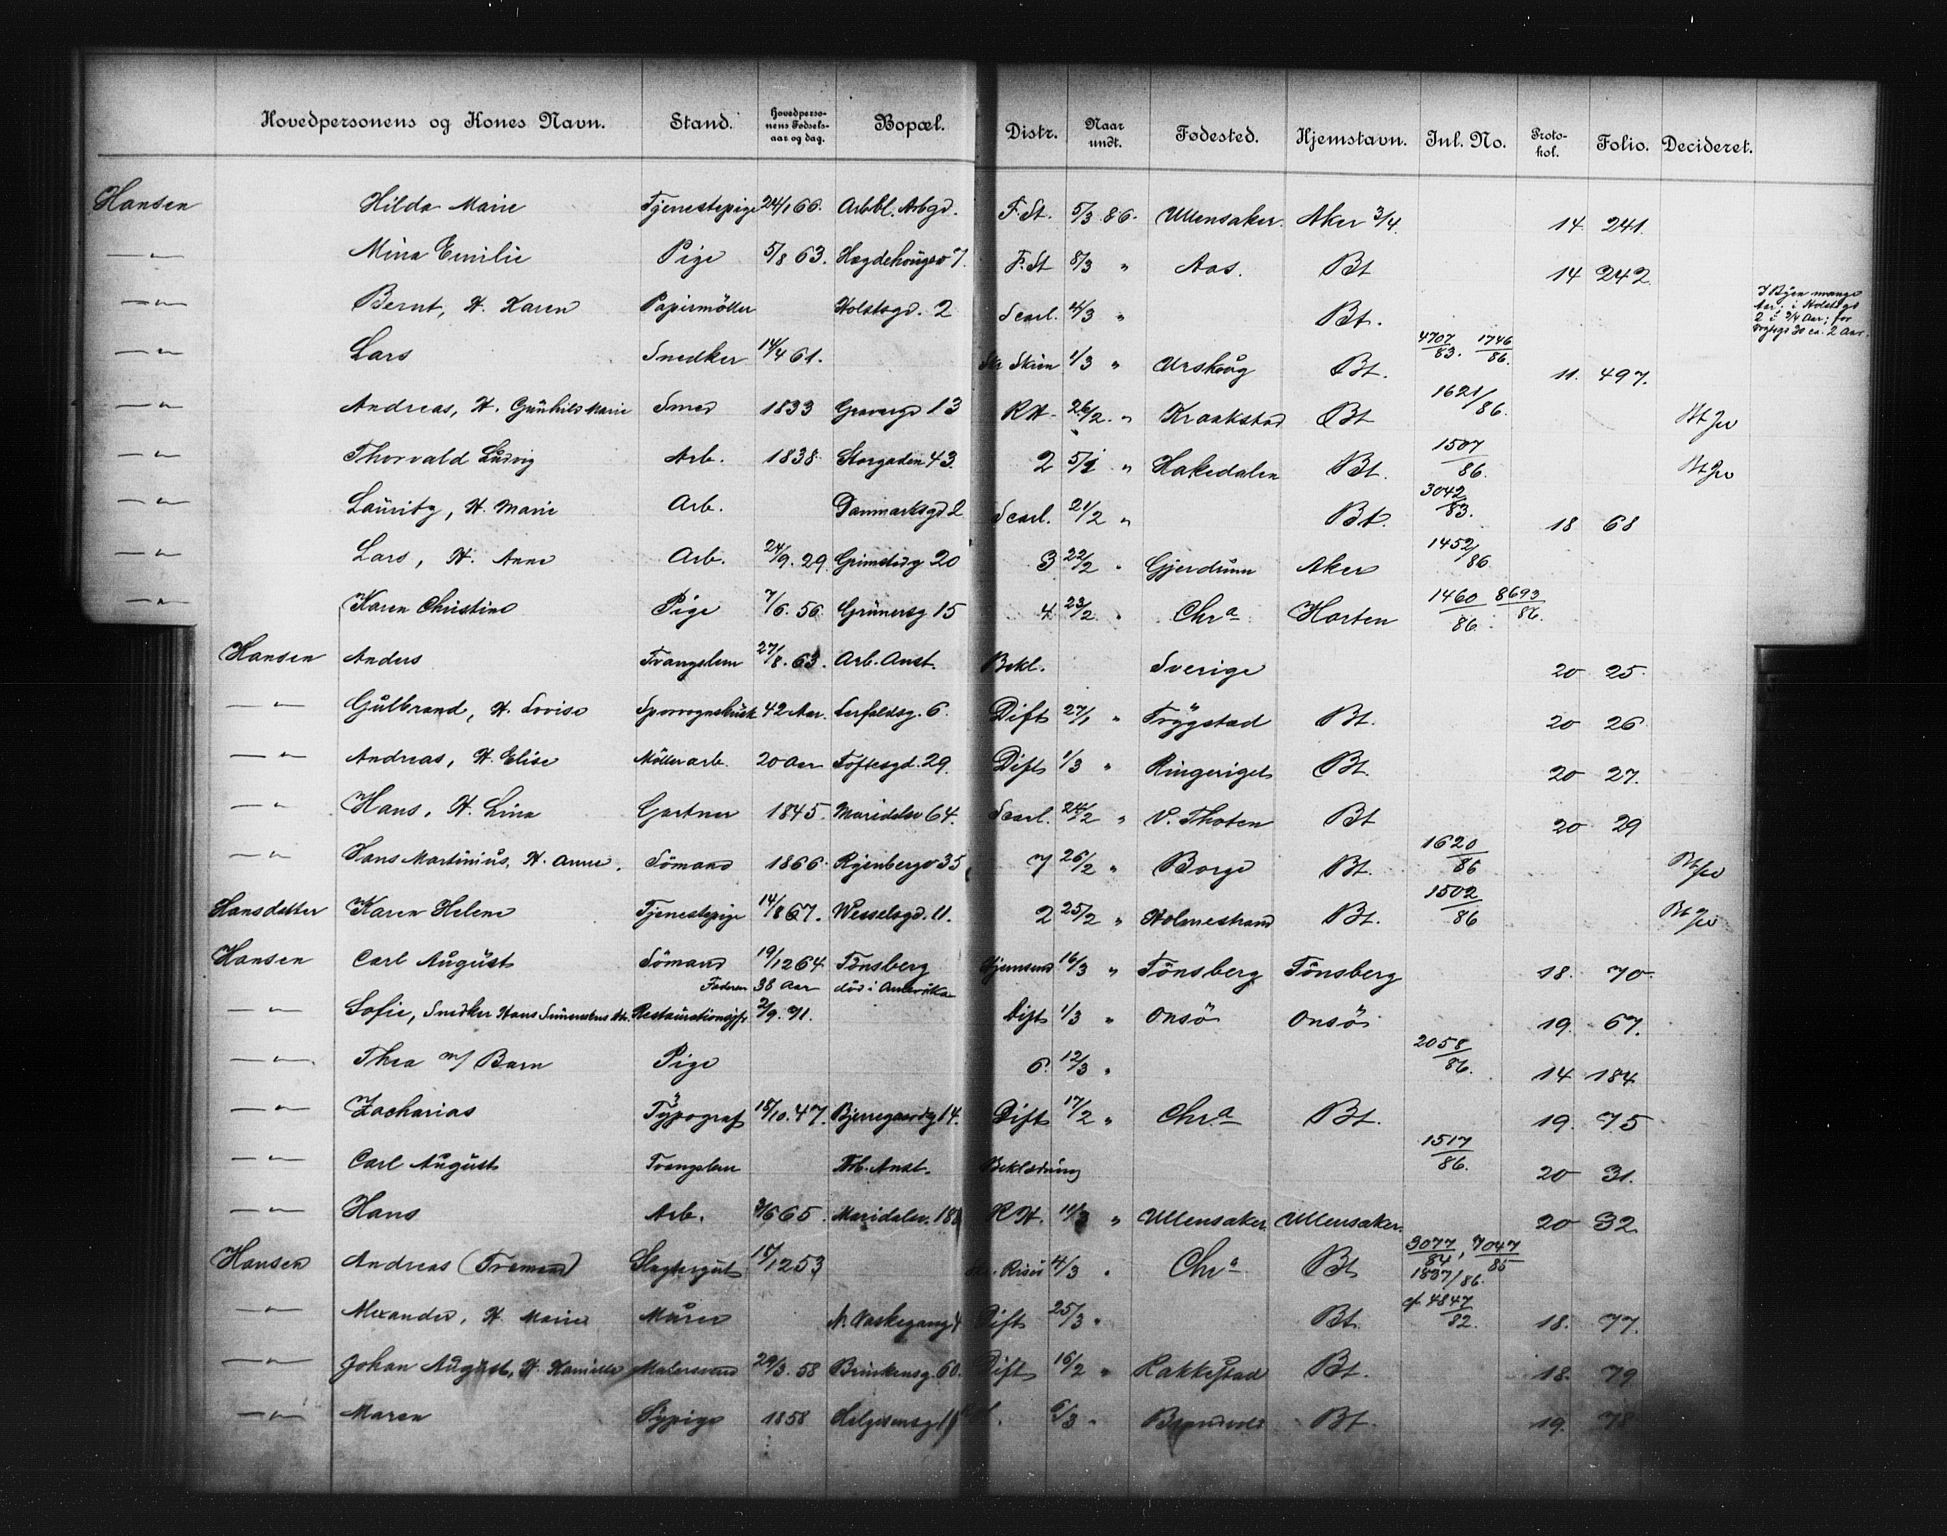 Hovedpersonens og Kones Navn. Stand. Hovedpersonens Fødselsaar og dag. Bopæl. Distr. Naar undt. Fødested. Hjemstavn. Inl. No. Protokol. Folio. Decideret.
Hansen Hilda Marie Tjenestepige 24/1 66. Arbbl. Arbgd. F. St. 5/3 86. Ullensaker. Aker 3/4. 14 241.
—"— Mina Emilie Pige 5/8 63. 7. F. St 8/3 " Aas. Bt 14 242.
—"— Bernt, H. Karen Papirmöller Holstsgd. 2 Scarl. 4/3 " Bt. I Byen mange Aar; i Holstsgd 2 i 3/4 Aar; før 30 ca. 2 Aar.
—"— Lars Snedker 14/4 61. Skien 1/3 " Urskoug Bt. 4707/83. 1746/86. 11. 497.
—"— Andreas, H. Gunhild Marie Smed 1833 Gravergd 13 RH. 26/2. " Kraakstad Bt 1621/86. Bt Jw
—"— Thorvald Ludvig Arb. 1838 Storgaden 43. 2 5/1 " Hakedalen Bt. 1507/86. Bt Jw
—"— Lauritz, H. Marie Arb. Danmarksgd 2 Scarl. 21/2 " Bt. 3042/83. 18 68
—"— Lars, H. Anne Arb. 24/9. 29. Grimstadg 20 3 22/2 " Gjerdrum Aker 1452/86
—"— Karen Christine Pige 7/6. 56. Grünersg 15 4 23/2. " Chr.a Horten 1460/86 8693/86.
Hansen Anders Tvangslem 27/8. 63. Arb. Anst. Bekl. Sverige 20 25.
—"— Gulbrand, H. Lovise Sporvognskusk 42 Aar. 6. Dift 27/1 " Trygstad Bt. 20 26
—"— Andreas, H. Elise Möllerarb. 20 Aar Toftesgd. 29. Dift 1/3 " Ringeriget Bt. 20 27.
—"— Hans, H. Lina Gartner 1845. Maridalsv 64. Scarl. 24/2 " V. Thoten Bt 20 29
—"— Hans Martinius, H. Anne. Sömand 1866. Ryenbergv 35 7 26/2 " Borge Bt. 1620/86 Bt Jw
Hansdatter Karen Helene Tjenestepige 14/8 67. Wesselsgd. 11. 2 25/2 " Holmestrand Bt. 1502/86 Bt Jw
Hansen Carl August Sömand 19/12 64 Tönsberg Hjemsend 16/3 " Tönsberg Tönsberg 18. 70.
Faderen 38 Aar död i Amerika
—"— Sofie, Snedker Hans Simensens dtr. Restaurationsjfr 2/9. 71. Dift 1/3 " Onsö Onsö 19. 67.
—"— Thea m/ Barn Pige 6. 12/3 " 2058/86. 14 184
—"— Zacharias Typograf 15/10. 47. Bjerregaardsg 14. Dift 17/2 " Chr.a Bt. 19. 75
—"— Carl August Tvangslem Arb. Anst. Beklædning 1517/86. 20 31.
—"— Hans Arb. 65. Maridalsv. RH. " Ullensaker. Ullensaker. 20 32.
Hansen Andreas (Tremand) Slagtergut 15/12 53 Risör 4/3 " Chr.a Bt 3077/84, 7047/85 1837/86.
—"— Alexander, H. Marie Murer N. Vaskegang Dift 25/3 " Bt. cf. 4847/82. 18. 77.
—"— Johan August, H. Kamilla Malersvend 29/3. 58 Brinkensg. 60. Dift 16/2 " Rakkestad Bt. 18. 79
—"— Maren Sypige 1858 Helgesensg 6/3 " Brandvold Bt. 19. 78